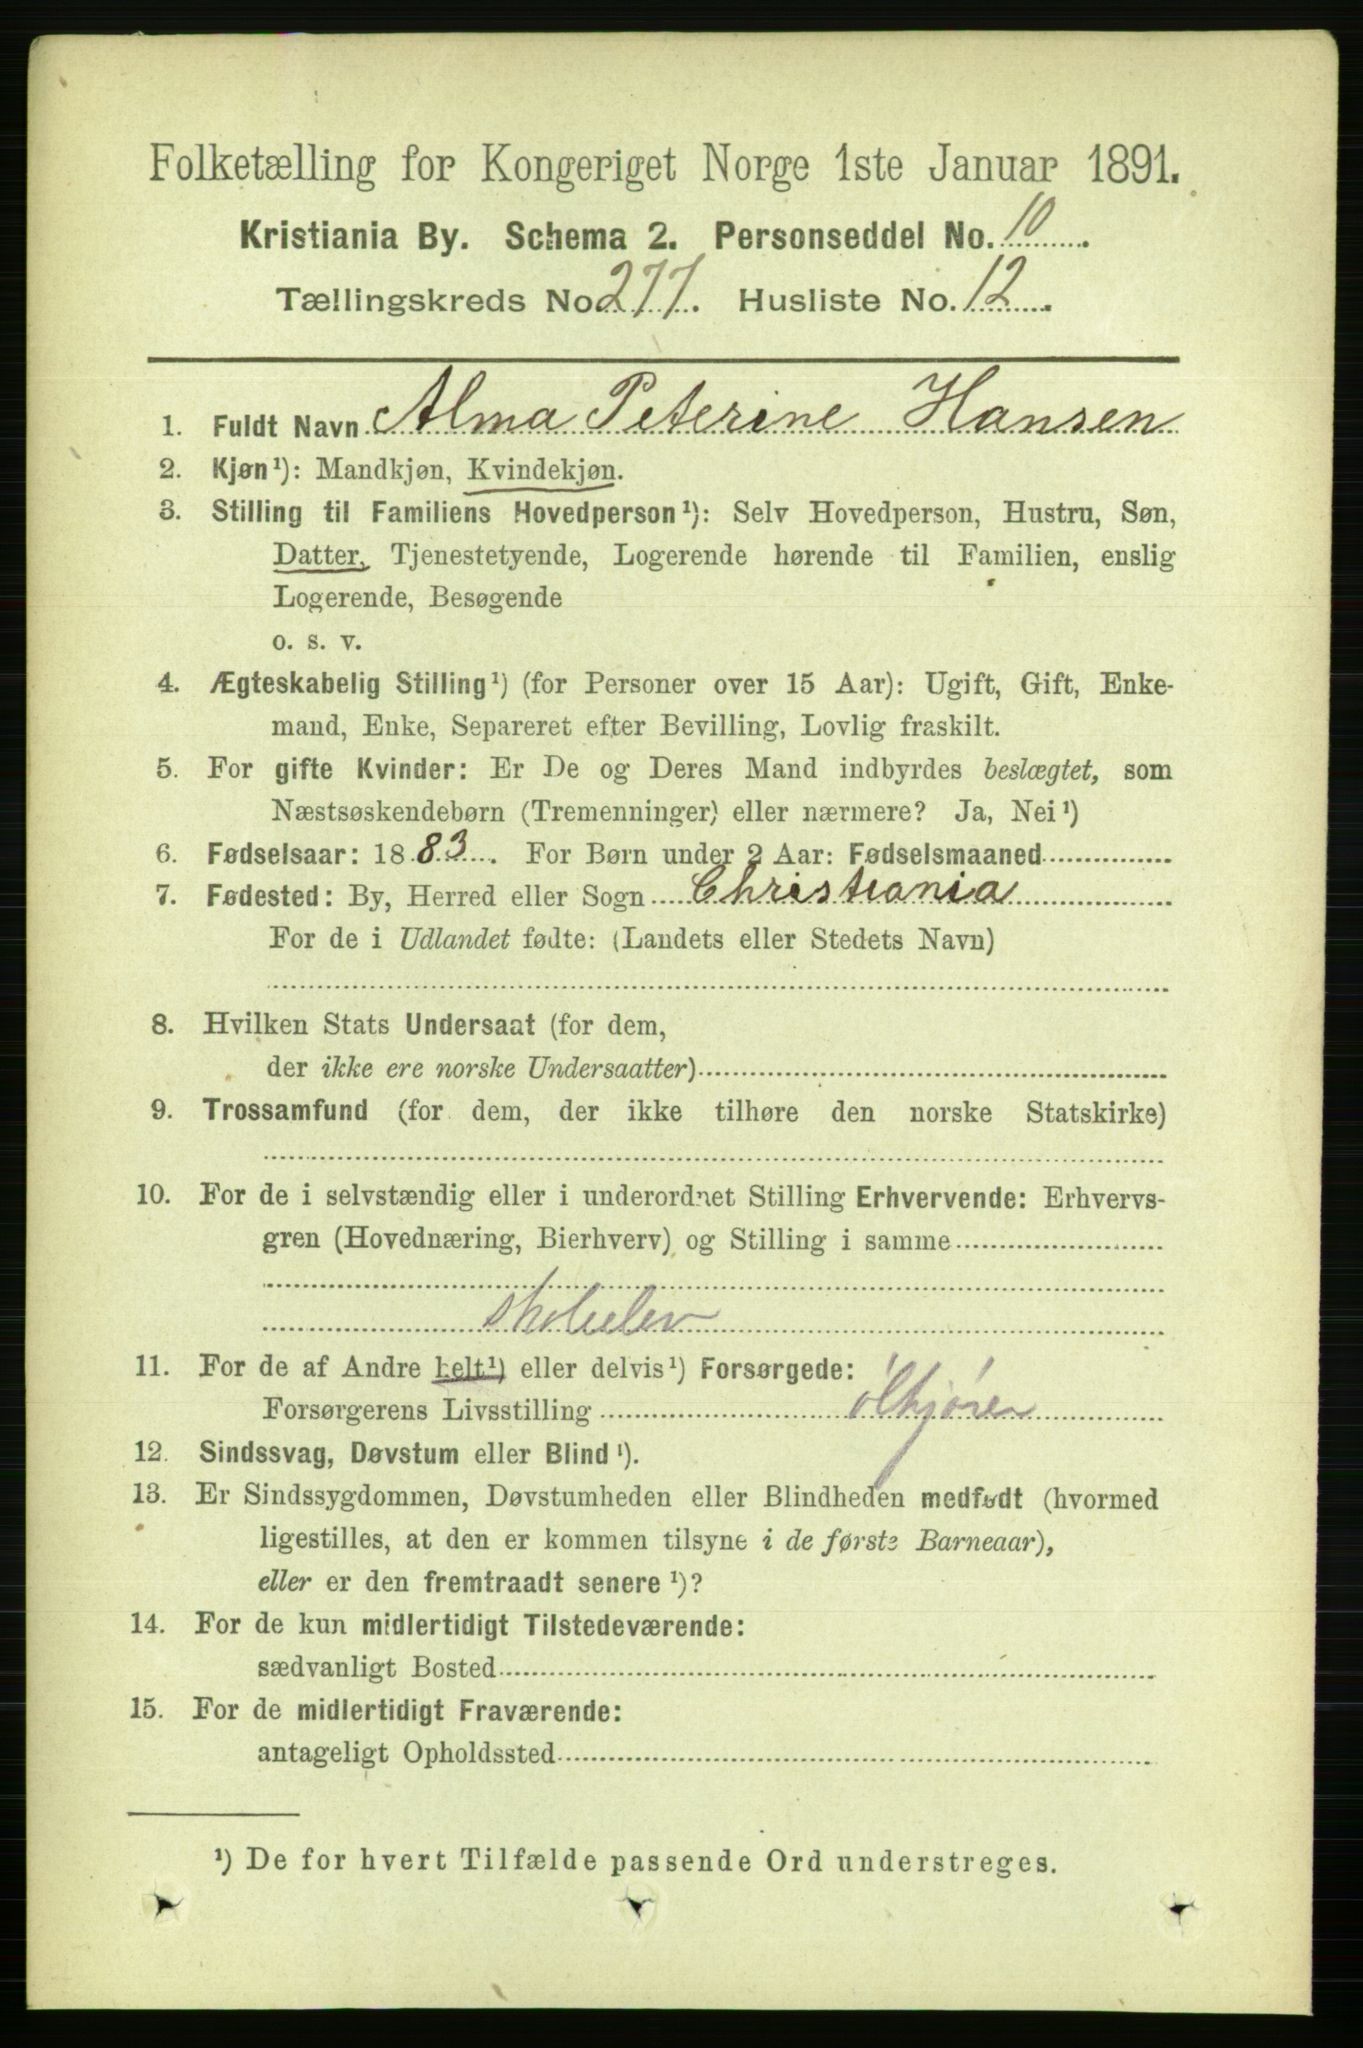 Folketælling for Kongeriget Norge 1ste Januar 1891.
Kristiania By. Schema 2. Personseddel No. 10.
Tællingskreds No. 277. Husliste No. 12.
1. Fuldt Navn Alma Peterine Hansen
2. Kjøn¹): Mandkjøn, Kvindekjøn.
3. Stilling til Familiens Hovedperson¹): Selv Hovedperson, Hustru, Søn,
Datter, Tjenestetyende, Logerende hørende til Familien, enslig
Logerende, Besøgende
o. s. v.
4. Ægteskabelig Stilling¹) (for Personer over 15 Aar): Ugift, Gift, Enke-
mand, Enke, Separeret efter Bevilling, Lovlig fraskilt.
5. For gifte Kvinder: Er De og Deres Mand indbyrdes beslægtet, som
Næstsøskendebørn (Tremenninger) eller nærmere? Ja, Nei¹)
6. Fødselsaar: 1883. For Børn under 2 Aar: Fødselsmaaned
7. Fødested: By, Herred eller Sogn Christiania
For de i Udlandet fødte: (Landets eller Stedets Navn)
8. Hvilken Stats Undersaat (for dem,
der ikke ere norske Undersaatter)
9. Trossamfund (for dem, der ikke tilhøre den norske Statskirke)
10. For de i selvstændig eller i underordnet Stilling Erhvervende: Erhvervs-
gren (Hovednæring, Bierhverv) og Stilling i samme
skoleelev
11. For de af Andre helt¹) eller delvis¹) Forsørgede:
Forsørgerens Livsstilling ølkjører
12. Sindssvag, Døvstum eller Blind¹).
13. Er Sindssygdommen, Døvstumheden eller Blindheden medfødt (hvormed
ligestilles, at den er kommen tilsyne i de første Barneaar),
eller er den fremtraadt senere¹)?
14. For de kun midlertidigt Tilstedeværende:
sædvanligt Bosted
15. For de midlertidigt Fraværende:
antageligt Opholdssted
¹) De for hvert Tilfælde passende Ord understreges.